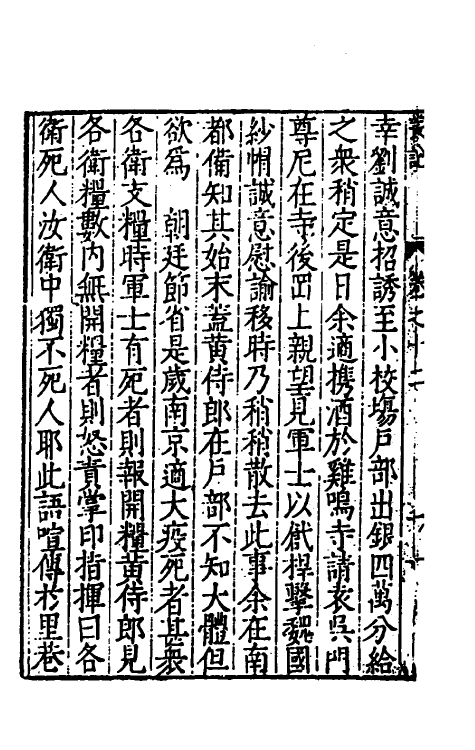 幸劉誠意招誘至小校場戶部出銀四萬分給
之衆稍定是日余適携酒於雞鳴寺請袁吳門
尊尼在寺後岡上親望見軍士以桿擊魏國
紗帽誠意慰諭移時乃稍稍散去此事余在南
都備知其始末蓋黄侍郎在戶部不知大體但
欲爲　朝廷節省是歲南京適大疫死者甚衆
各衛支糧時軍士有死者則報開糧黄侍郎見
各衛糧數內無開糧者則怒責掌印指揮曰各
衛死人汝衛中獨不死人耶此語喧傳於里巷